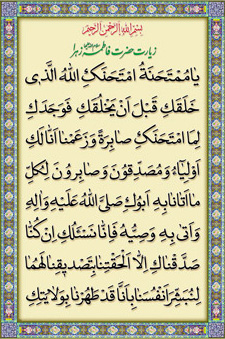 بسم الله الرحمن الرحیم
زیارت حضرت فاطمه زهرا
یا مُمْتَحَنَةُ امْتَحَنَکِ اللهُ الَّذی
خَلَقَکِ قَبْلَ اَنْ یَخْلُقَکِ فَوَجَدَکِ
لِمَا امْتَحَنَکِ صابِرَةً وَزَعَمْنا اَنّا لَکِ
اَوْلِیاءٌ وَمُصَدِّقُونَ وَصابِرُونَ لِکُلِّ
ما اَتانا بِهِ اَبُوکِ صَلَّی اللهُ عَلَیْهِ وَآلِهِ
وَاَتی بِهِ وَصِیُّهُ فَاِنّا نَسْئَلُکِ اِنْ کُنّا
صَدَّقْناکِ اِلاّ اَلْحَقْتِنا بِتَصْدیقِنا لَهُما
لِنُبَشِّرَ اَنْفُسَنا بِاَنّا قَدْ طَهُرْنا بِوِلایَتِکِ